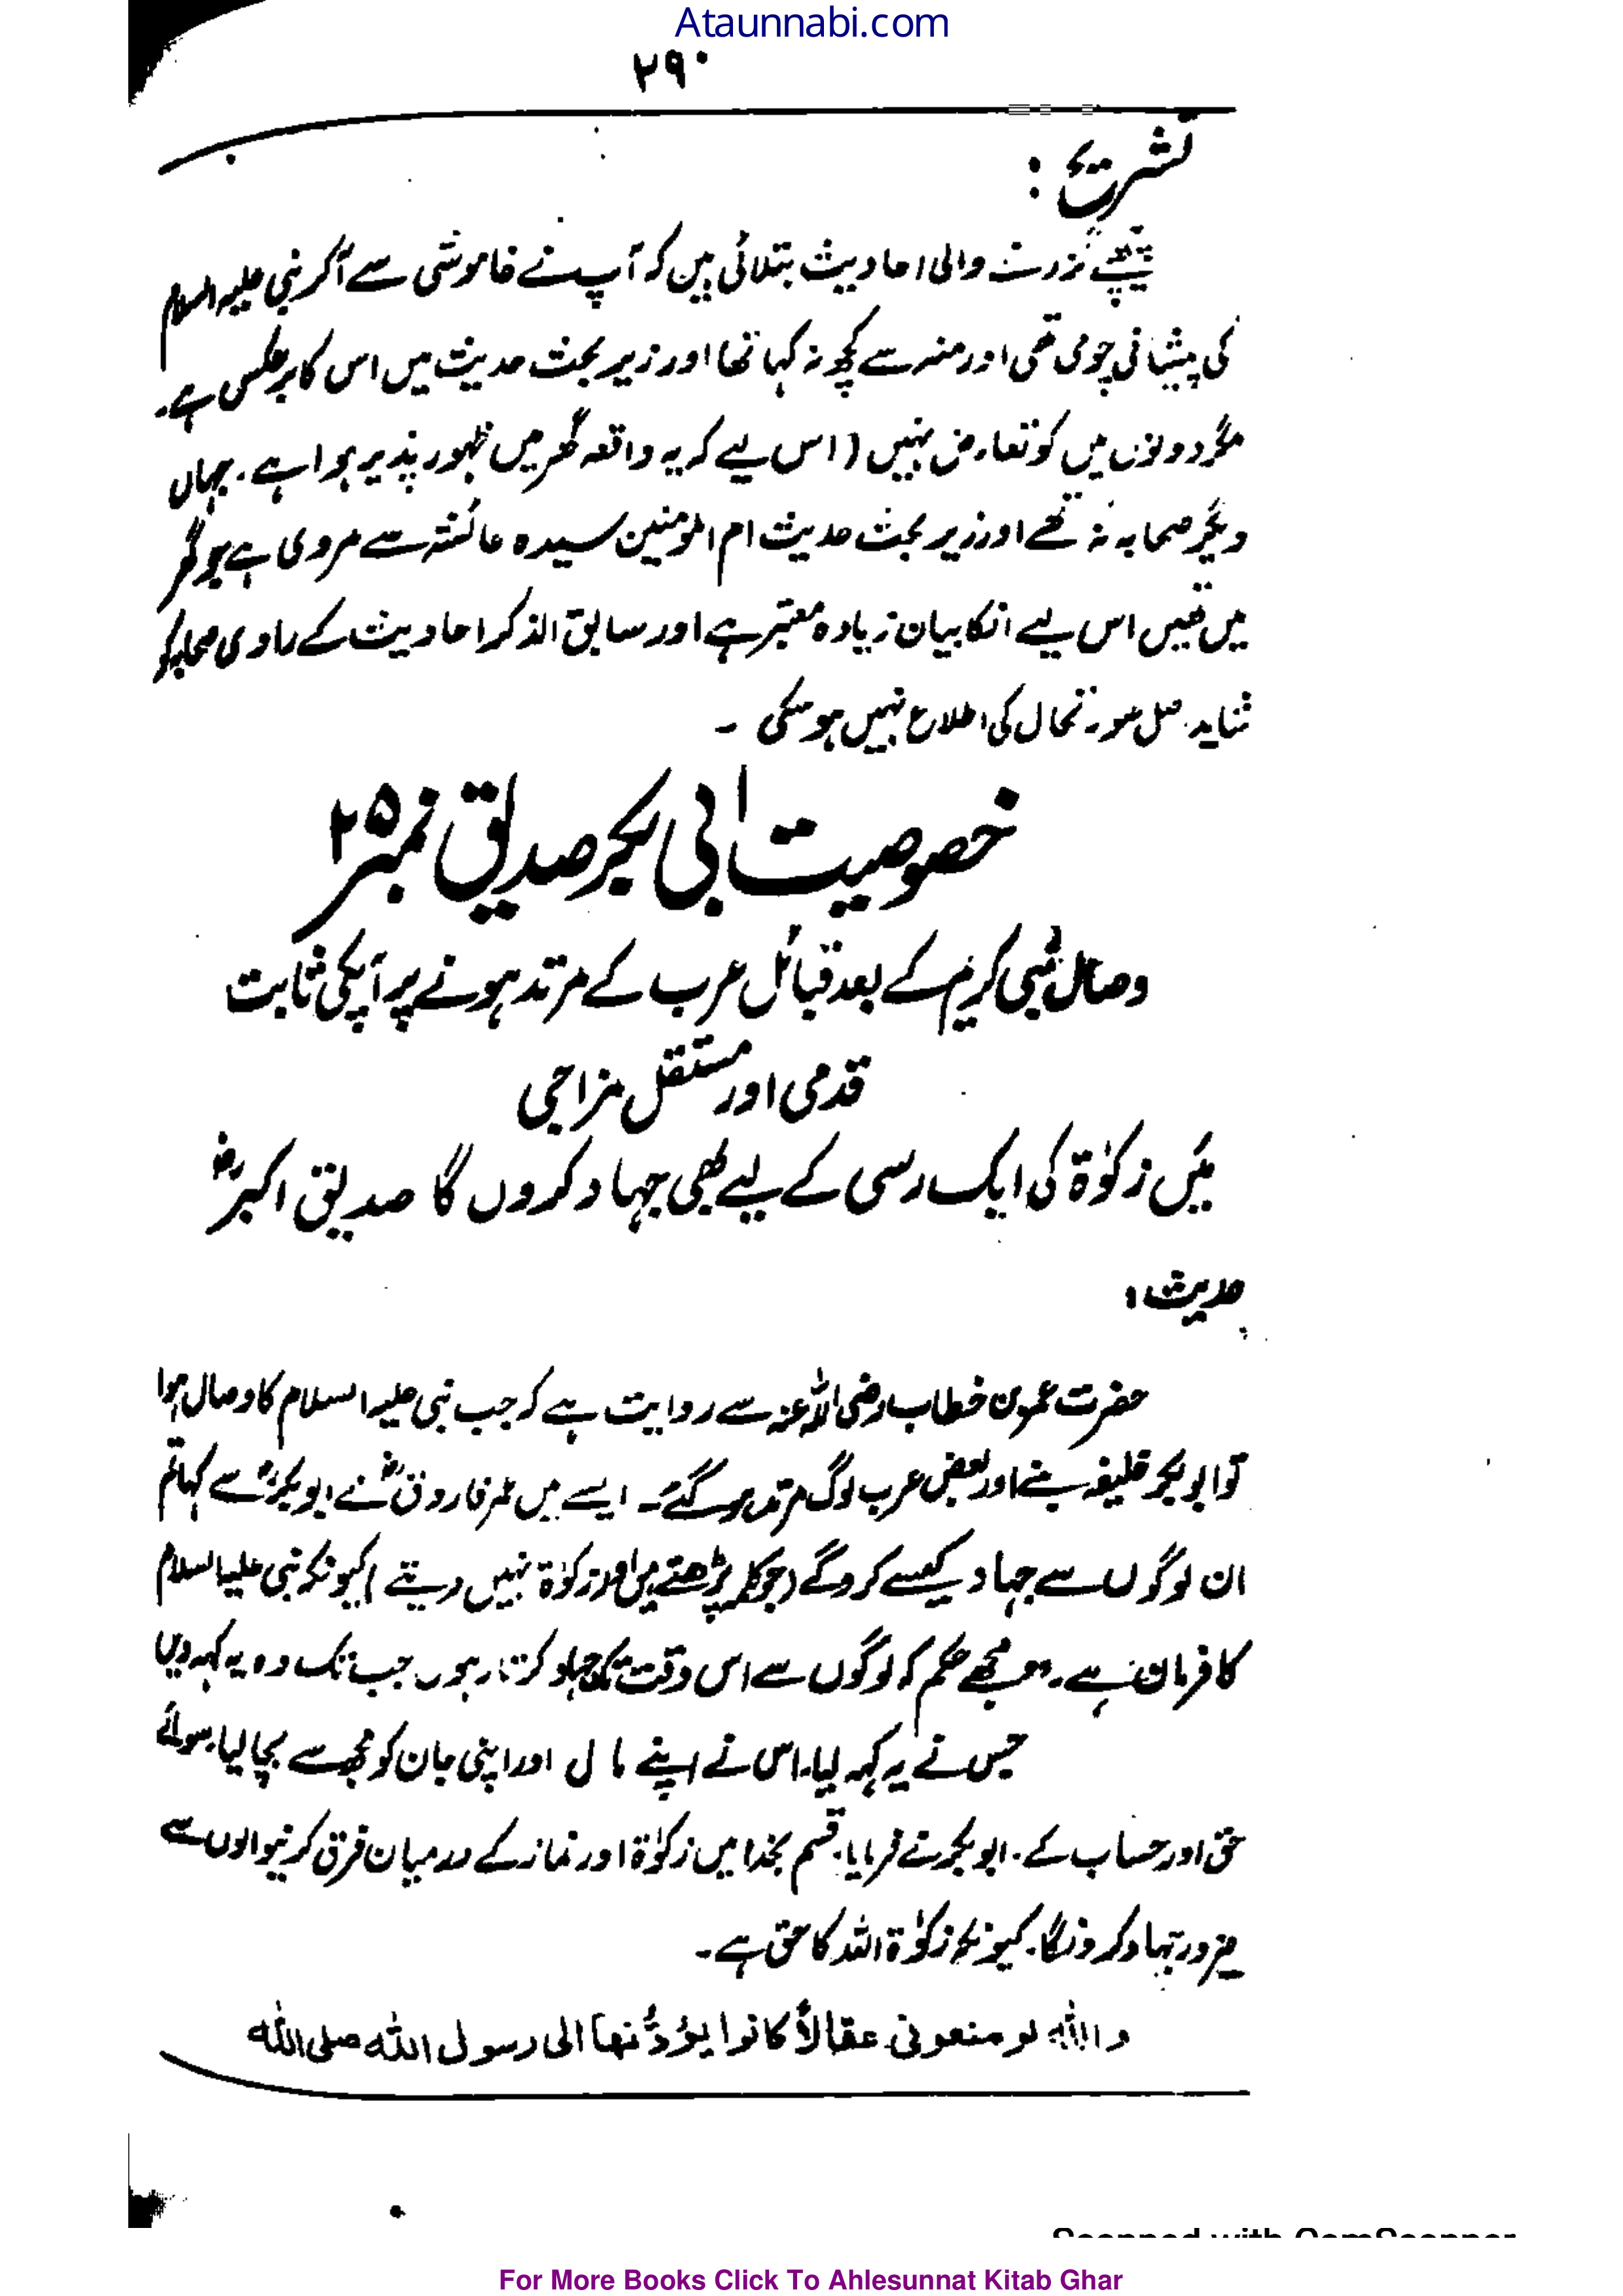 Ataunnabi.com
۲۹۰
تشریح :
پیچھے گزرنے والی احادیث بتلاتی ہیں کہ آپ نے خاموشی سے آکر نبی علیہ السلام
کی پیشانی چومی تھی اور منہ سے کچھ نہ کہا تھا اور زیر بحث حدیث میں اس کا برعکس ہے۔
مگر دونوں میں کو تعارض نہیں (اس لیے کہ یہ واقعہ گھر میں ظہور پذیر ہوا ہے۔ جہاں
دیگر صحابہ نہ تھے اور زیر بحث حدیث ام المومنین سیدہ عائشہ سے مروی ہے جو گھر
میں تھیں اس لیے انکا بیان زیادہ معتبر ہے اور سابق الذکر احادیث کے راوی صحابہ کو
شاید اصل صورتحال کی اطلاع نہیں ہو سکی ۔
خصوصیت ابی بکر صدیق نمبر ۲۵
وصال نبی کریم کے بعد قبائل عرب کے مرتد ہونے پر آپکی ثابت
قدمی اور مستقل مزاجی
میں زکوٰۃ کی ایک رسی کے لیے بھی جہاد کروں گا صدیق اکبرؓ
حدیث :
حضرت عمر بن خطاب رضی اللہ عنہ سے روایت ہے کہ جب نبی علیہ السلام کا وصال ہوا
تو ابو بکر خلیفہ بنے اور بعض عرب لوگ مرتد ہو گئے۔ ایسے میں عمر فاروقؓ نے ابو بکرؓ سے کہا تم
ان لوگوں سے جہاد کیسے کرو گے (جو کلمہ پڑھتے ہیں اور زکوٰۃ نہیں دیتے) کیونکہ نبی علیہ السلام
کا فرمان ہے۔ مجھے حکم کہ لوگوں سے اس وقت تک جہاد کرتا رہوں جب تک وہ یہ کہہ دیں
جس نے یہ کہہ لیا۔ اس نے اپنے مال اور اپنی جان کو مجھ سے بچا لیا۔ سوائے
حق اور حساب کے۔ ابو بکر نے فرمایا۔ قسم بخدا میں زکوٰۃ اور نماز کے درمیان فرق کرنیوالوں سے
ضرور جہاد کرونگا۔ کیونکہ زکوٰۃ اللہ کا حق ہے۔
واللہ لو منعونی عقالاً کانوا یؤدُّنھا الی رسول اللہ صلی اللہ
For More Books Click To Ahlesunnat Kitab Ghar